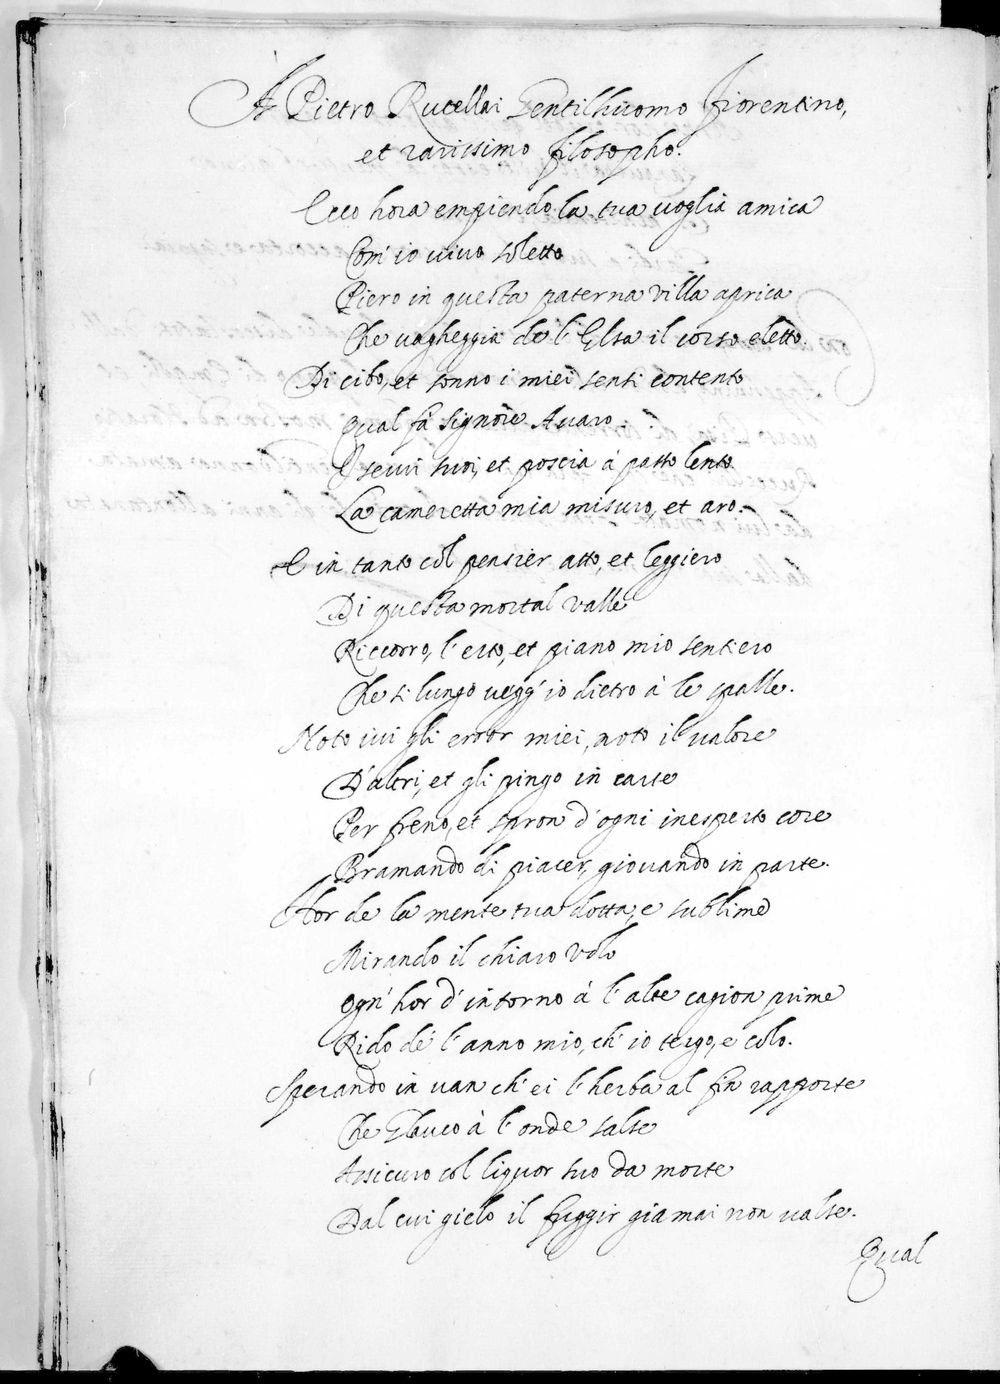 A Pietro Rucellai Gentilhuomo fiorentino,
et rarissimo filosopho.
Ecco hora empiendo la tua voglia amica
Com' io vivo soletto
Piero in questa paterna villa aprica
Che vagheggia de l'Elsa il corso eletto.
Di cibo, et sonno i miei sensi contento
Qual fà signore Avaro
I servi suoi, et poscia à passo lento
La cameretta mia misuro, et aro.
E in tanto col pensier atto, et leggiero
Di questa mortal valle
Riccorro, l'erto, et piano mio sentiero
Che sì lungo vegg' io dietro à le spalle.
Noto ivi gli error miei, noto il valore
D'altri, et gli pingo in carte
Per freno, et spron d'ogni inesperto core
Bramando di piacer, giovando in parte.
Hor de la mente tua dotta, e sublime
Mirando il chiaro volo
Ogn' hor d'intorno à l'alte cagion prime
Rido de l'anno mio, ch' io tergo, e colo.
Sperando in van ch' ei l'herba al fin rapporte
Che Glauco à l'onde salse
Assicuro col liquor suo da morte
Dal cui gielo il fuggir giamai non valse.
Qual